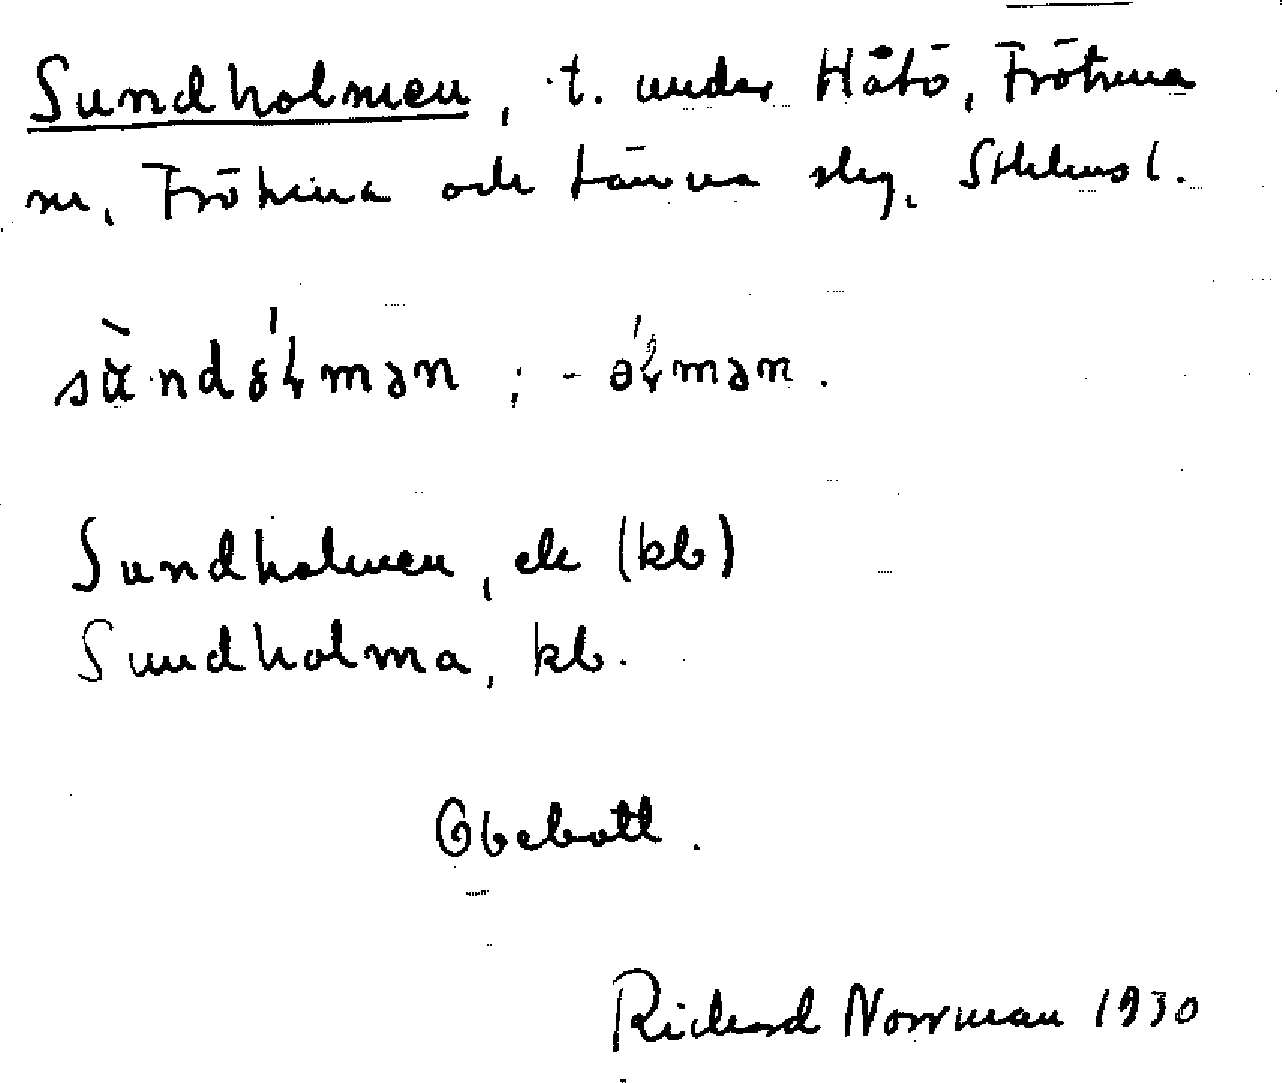 Sundholmen, t. under Håtö, Frötuna
sn, Frötuna och Länna slg, Sthlms l.
sùndə́ɫmən ; - ə́ɫmən.
Sundholmen, ek (kb)
Sundholma, kb.
Obebott.
Richard Norrman 1930